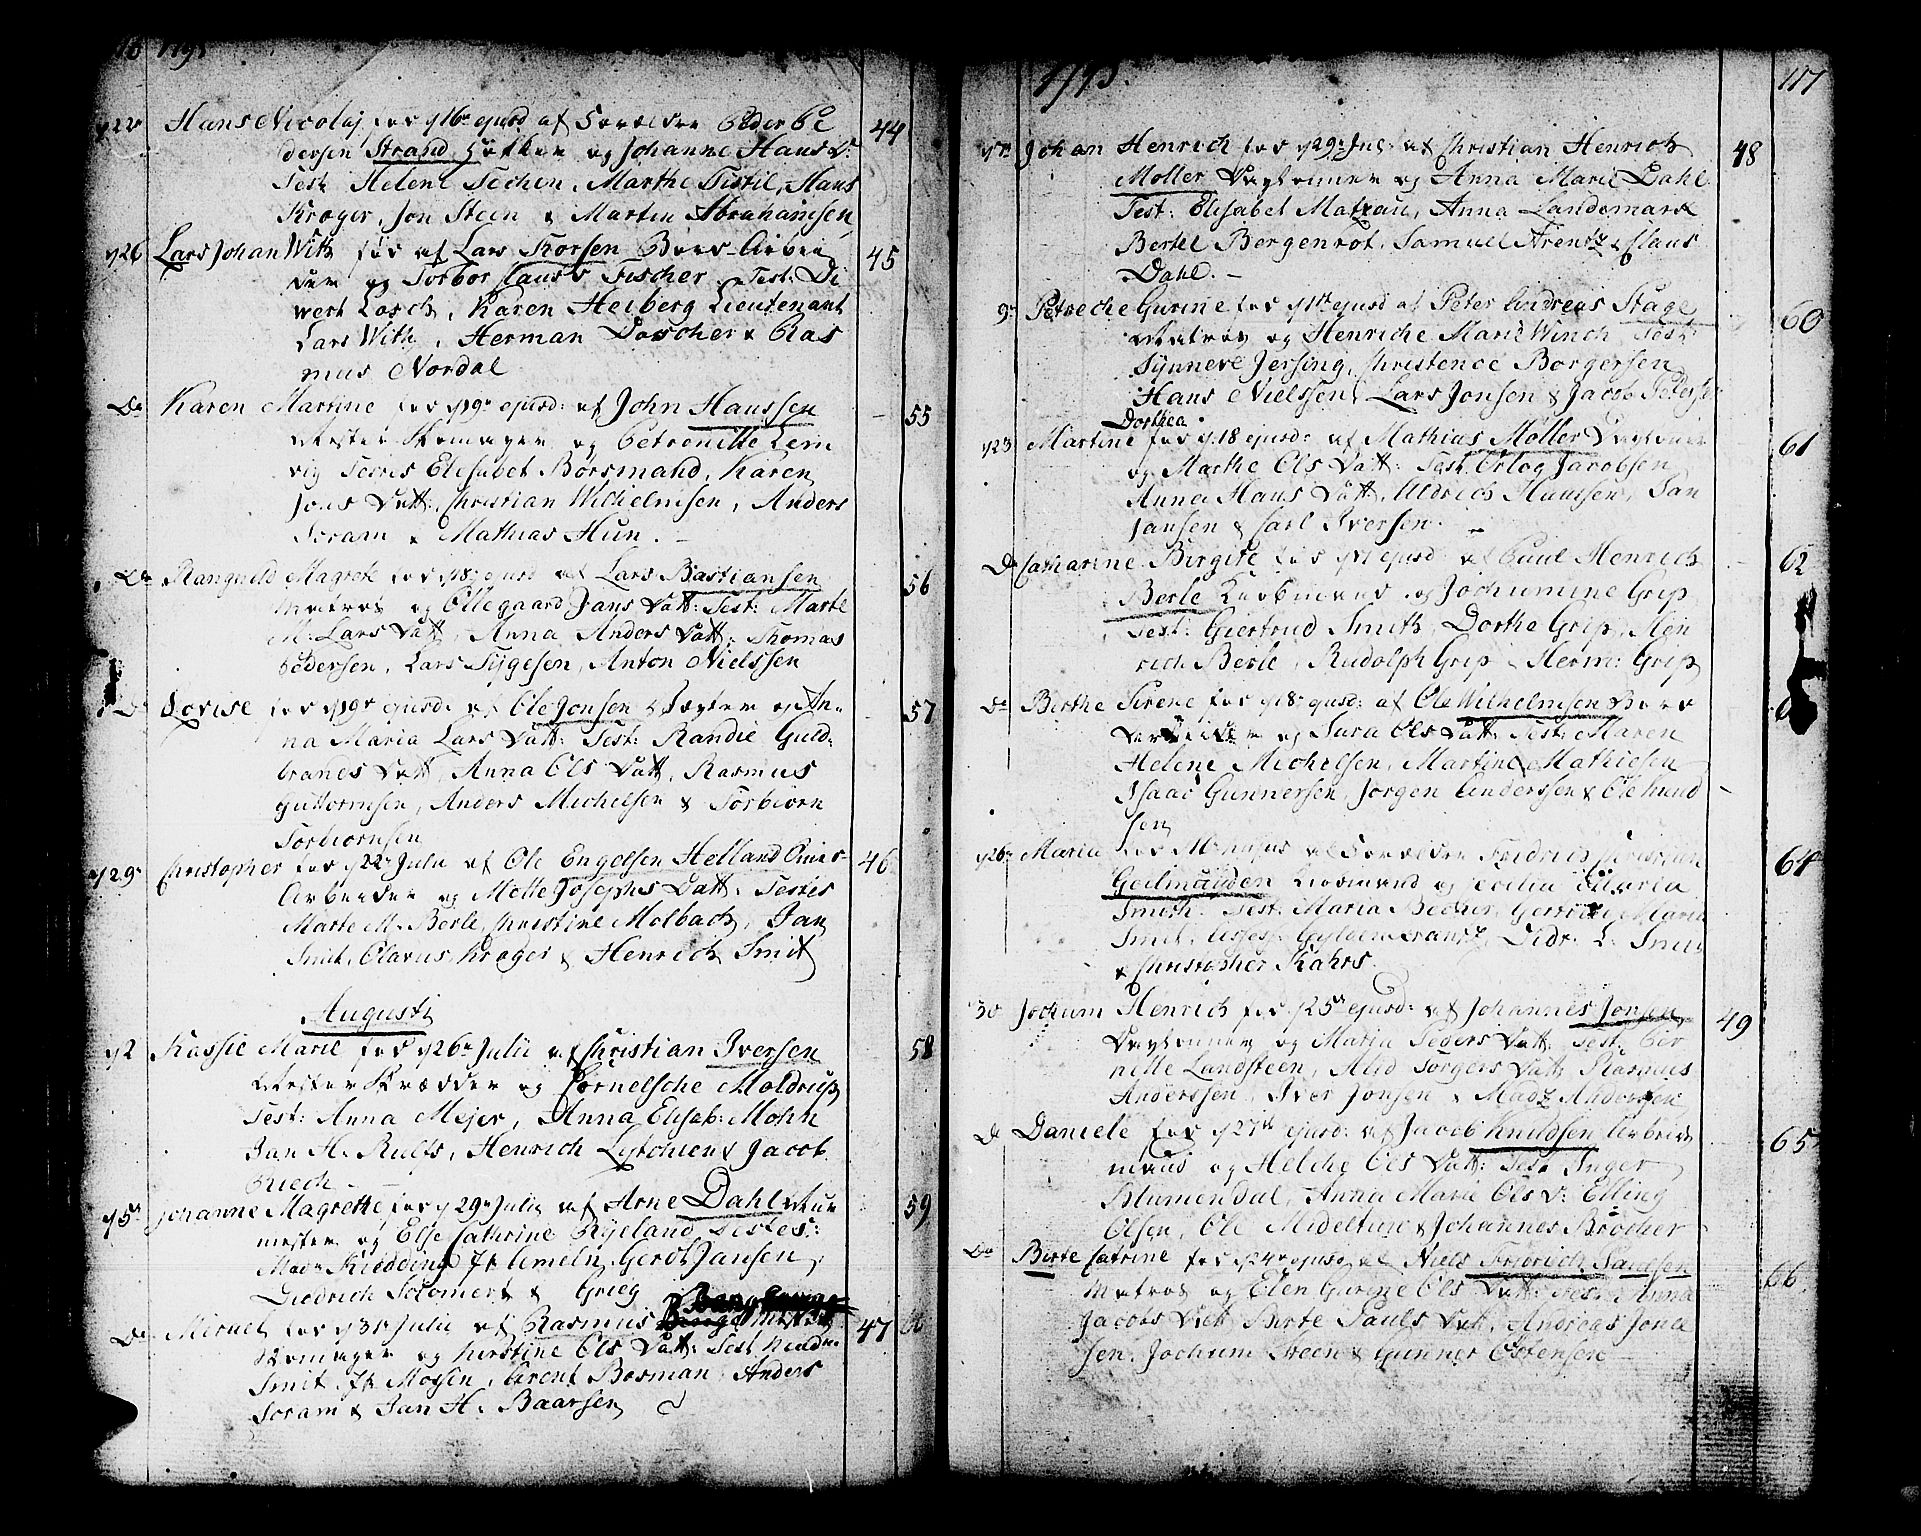 1795
d 22 Hans Nicolaj fød d 16 ejusd af Forældre Peder Pe 44
dersen Strand Høker og Johanne Hans D.
Test. Helene Techen, Marthe Tistil, Hans
Krøger, Jon Steen & Martin Abrahamsen
d 26 Lars Johan With fød af Lars Korsen Bors-Arbei 45
der og Torbor Claus D Fischer. Test: Di
wert Losch, Karen Heiberg Lieutenant
Lars With, Herman Doscher & Ras
mus Nordal
Do Karen Martine fød d 19 ejusd: af John Haussen 55
Mester Skomager og Petronille Lem
vig Testes Elesabet Borsmand, Karen
Jons Datt:, Christian Wilhelmsen, Anders
Soram & Mathias Hun.
Do Ranguild Magrete fød d 18 ejusd af Lars Bastiansen 56
Matros og Ollegaard Jans Datt: Test: Marte
M: Lars Datt, Anna Anders Datt: Thomas
Pedersen, Lars Tygesen, Anton Nielssen
Do Lovise fød d 19 ejusd: af Ole Jonsen Vægter og An- 57
na Maria Lars Datt: Test: Randie Guld-
brands Datt, Anna Ols Datt, Rasmus
Guttormsen, Anders Michelsen & Torbiorn
Torbiornsen
d 29 Christopher fød d 22 Julii af Ole Engelsen Helland 46
Arbeider og Mette Josephs Datt: Testes
Marte M. Berle, Christine Molbach, Jan
Smit, Olavus Krøger & Henrich Smit
Augusti
d 2 Kassie Marie fød d 26 Julii af Christian Iversen 58
Mester Skrædder og Cornelsche Moldrup
Test: Anna Mejer, Anna Elisab: Mohn
Jan H. Rulfs, Henrich Lytchien & Jacob
Riech
d 5 Johanne Magrette fød d 29 Julii af Arne Dahl Muur 59
mester og Else Cathrine Ryeland Testes:
Mad. Kiødding Jfr Ameln, Gerdt Jansen,
Diedrich Solomert & Grieg
Do Michel fød d 31 Julii af Rasmus Bang Mester 47
Skomager og Kirstine Ols Datt: Test
Smit Jfr Mossen, Arent Bosman, Anders
Soram & Jan H. Baarsen
1795. 117
d 7 Johan Henrich fød d 29 Jul: af Christian Henrich 48
Møller Vægtermer og Anna Marie Dahl
Test: Elisabet Matzau, Anna Landemark
Bertel Bergenrot, Samuel Arentz, Claus
Dahl.
9 Petreche Gurine fød d 1 ejusd af Peter Andreas Stage 60
Matros og Henriche Marie Winch Test
Synneve Jersing, Christence Borgersen
Hans Nielssen, Lars Jonsen & Jacob Pederse
Dorthea
d 23 Martine fød d 18 ejusd: af Mathias Møller 61
og Marthe Ols Datt: Test. Orlog Jacobsen
Anna Hans Datt, Uldrich Haussen, Jan
Jansen & Carl Iversen.
Do Catharine Birgite fød d ejusd af Paul Henrich 62
Berle Kiøbmand og Jochumine Grip
Test: Giertrud Smith, Dorthe Grip, Hen
rich Berle, Rudolph Grip, Herm: Grip
Do Berthe Sirene fød d 18 ejusd: af Ole Wilhelmsen Bors
Arbeider og Sara Ols Datt: Test: Maren
Helene Michelsen, Martine Mathiesen
Isaac Gunnersen, Jorgen Anderssen & Ole Knud
sen
d 26 Maria fød af Forældre Fridrich Christian 64
Geelmuiden Kiøbmand og Cecilia Maria
Smith. Test: Maria Becher, Gertrude Maria
Smit, Gyldenkrantz, Didr. L. Smit
& Christopher Kahrs.
30 Jochum Henrich fød d 25 ejusd: af Johannes Jonsen 49
Vægtermer og Maria Peders Datt: Test. Per
nille Lundsteen, Alid Torgers Datt Rasmus
Anderssen, Iver Jonsen & Madz Andersen
Do Daniele fød d 27 ejusd: af Jacob Knudsen Arbeids 65
mand og Helche Ols Datt: Test. Inger
Blumendal, Anna Marie Ols D: Elling
Olsen, Ole Mideltun & Johannes Brocher
Do Birte Catrine fød d 24 ejusd af Niels Fridrich Paulsen 66
Matros og Elen Gurine Ols Datt: Test. Anna
Jacobs Datt, Birte Pauls Datt, Andreas Jona
sen, Jochum Steen & Gunner Ostensen